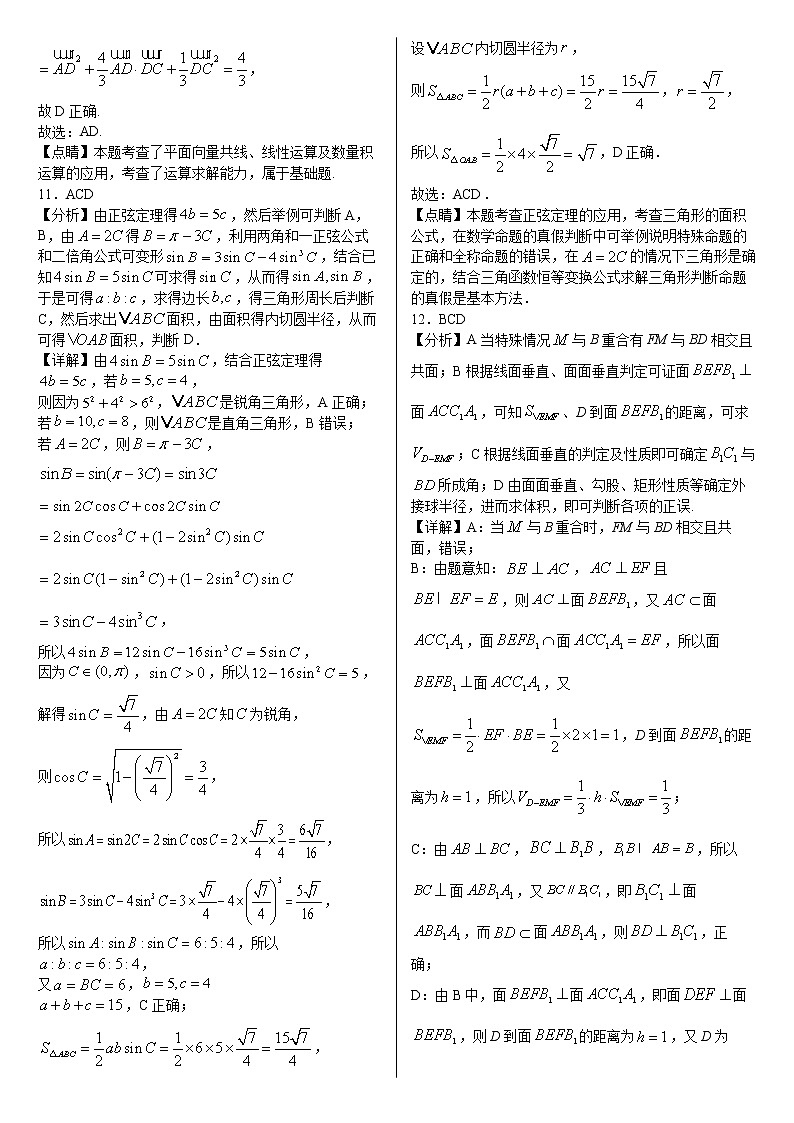 = AD² + 4/3 AD · DC + 1/3 DC² = 4/3，
故 D 正确.
故选：AD.
【点睛】本题考查了平面向量共线、线性运算及数量积
运算的应用，考查了运算求解能力，属于基础题.
11．ACD
【分析】由正弦定理得4b = 5c，然后举例可判断 A，
B，由 A = 2C 得 B = π − 3C，利用两角和一正弦公式
和二倍角公式可变形 sin B = 3sin C − 4sin³ C，结合已
知4sin B = 5sin C 可求得sin C，从而得sin A, sin B，
于是可得 a : b : c，求得边长 b, c，得三角形周长后判断
C，然后求出VABC 面积，由面积得内切圆半径，从而
可得VOAB 面积，判断 D．
【详解】由4sin B = 5sin C，结合正弦定理得
4b = 5c，若 b = 5, c = 4，
则因为 5² + 4² > 6²，VABC 是锐角三角形，A 正确；
若 b = 10, c = 8，则VABC 是直角三角形，B 错误；
若 A = 2C，则 B = π − 3C，
sin B = sin(π − 3C) = sin3C
= sin 2C cos C + cos 2C sin C
= 2sin C cos² C + (1 − 2sin² C)sin C
= 2sin C(1 − sin² C) + (1 − 2sin² C)sin C
= 3sin C − 4sin³ C，
所以 4sin B = 12sin C − 16sin³ C = 5sin C，
因为 C ∈ (0, π)，sin C > 0，所以12 − 16sin² C = 5，
解得 sin C = √7/4，由 A = 2C 知 C 为锐角，
则 cos C = √(1 − (√7/4)²) = 3/4，
所以 sin A = sin2C = 2sin C cos C = 2 × √7/4 × 3/4 = 6√7/16，
sin B = 3sin C − 4sin³ C = 3 × √7/4 − 4 × (√7/4)³ = 5√7/16，
所以 sin A : sin B : sin C = 6 : 5 : 4，所以
a : b : c = 6 : 5 : 4，
又 a = BC = 6，b = 5, c = 4
a + b + c = 15，C 正确；
S△ABC = 1/2 ab sin C = 1/2 × 6 × 5 × √7/4 = 15√7/4，
设VABC 内切圆半径为 r，
则 S△ABC = 1/2 r(a + b + c) = 15/2 r = 15√7/4，r = √7/2，
所以 S△OAB = 1/2 × 4 × √7/2 = √7，D 正确．
故选：ACD．
【点睛】本题考查正弦定理的应用，考查三角形的面积
公式，在数学命题的真假判断中可举例说明特殊命题的
正确和全称命题的错误，在 A = 2C 的情况下三角形是确
定的，结合三角函数恒等变换公式求解三角形判断命题
的真假是基本方法．
12．BCD
【分析】A 当特殊情况 M 与 B 重合有 FM 与 BD 相交且
共面；B 根据线面垂直、面面垂直判定可证面 BEFB₁ ⊥
面 ACC₁A₁，可知 SVEMF、D 到面 BEFB₁的距离，可求
VD−EMF；C 根据线面垂直的判定及性质即可确定 B₁C₁ 与
BD 所成角；D 由面面垂直、勾股、矩形性质等确定外
接球半径，进而求体积，即可判断各项的正误.
【详解】A：当 M 与 B 重合时，FM 与 BD 相交且共
面，错误；
B：由题意知：BE ⊥ AC，AC ⊥ EF 且
BE I EF = E，则 AC ⊥面 BEFB₁，又 AC ⊂ 面
ACC₁A₁，面 BEFB₁ ∩ 面 ACC₁A₁ = EF，所以面
BEFB₁ ⊥面 ACC₁A₁，又
SVEMF = 1/2 · EF · BE = 1/2 × 2 × 1 = 1，D 到面 BEFB₁的距
离为 h = 1，所以VD−EMF = 1/3 · h · SVEMF = 1/3；
C：由 AB ⊥ BC，BC ⊥ B₁B，B₁B I AB = B，所以
BC ⊥ 面 ABB₁A₁，又 BC // B₁C₁，即 B₁C₁ ⊥ 面
ABB₁A₁，而 BD ⊂ 面 ABB₁A₁，则 BD ⊥ B₁C₁，正
确；
D：由 B 中，面 BEFB₁ ⊥面 ACC₁A₁，即面 DEF ⊥面
BEFB₁，则 D 到面 BEFB₁的距离为 h = 1，又 D 为